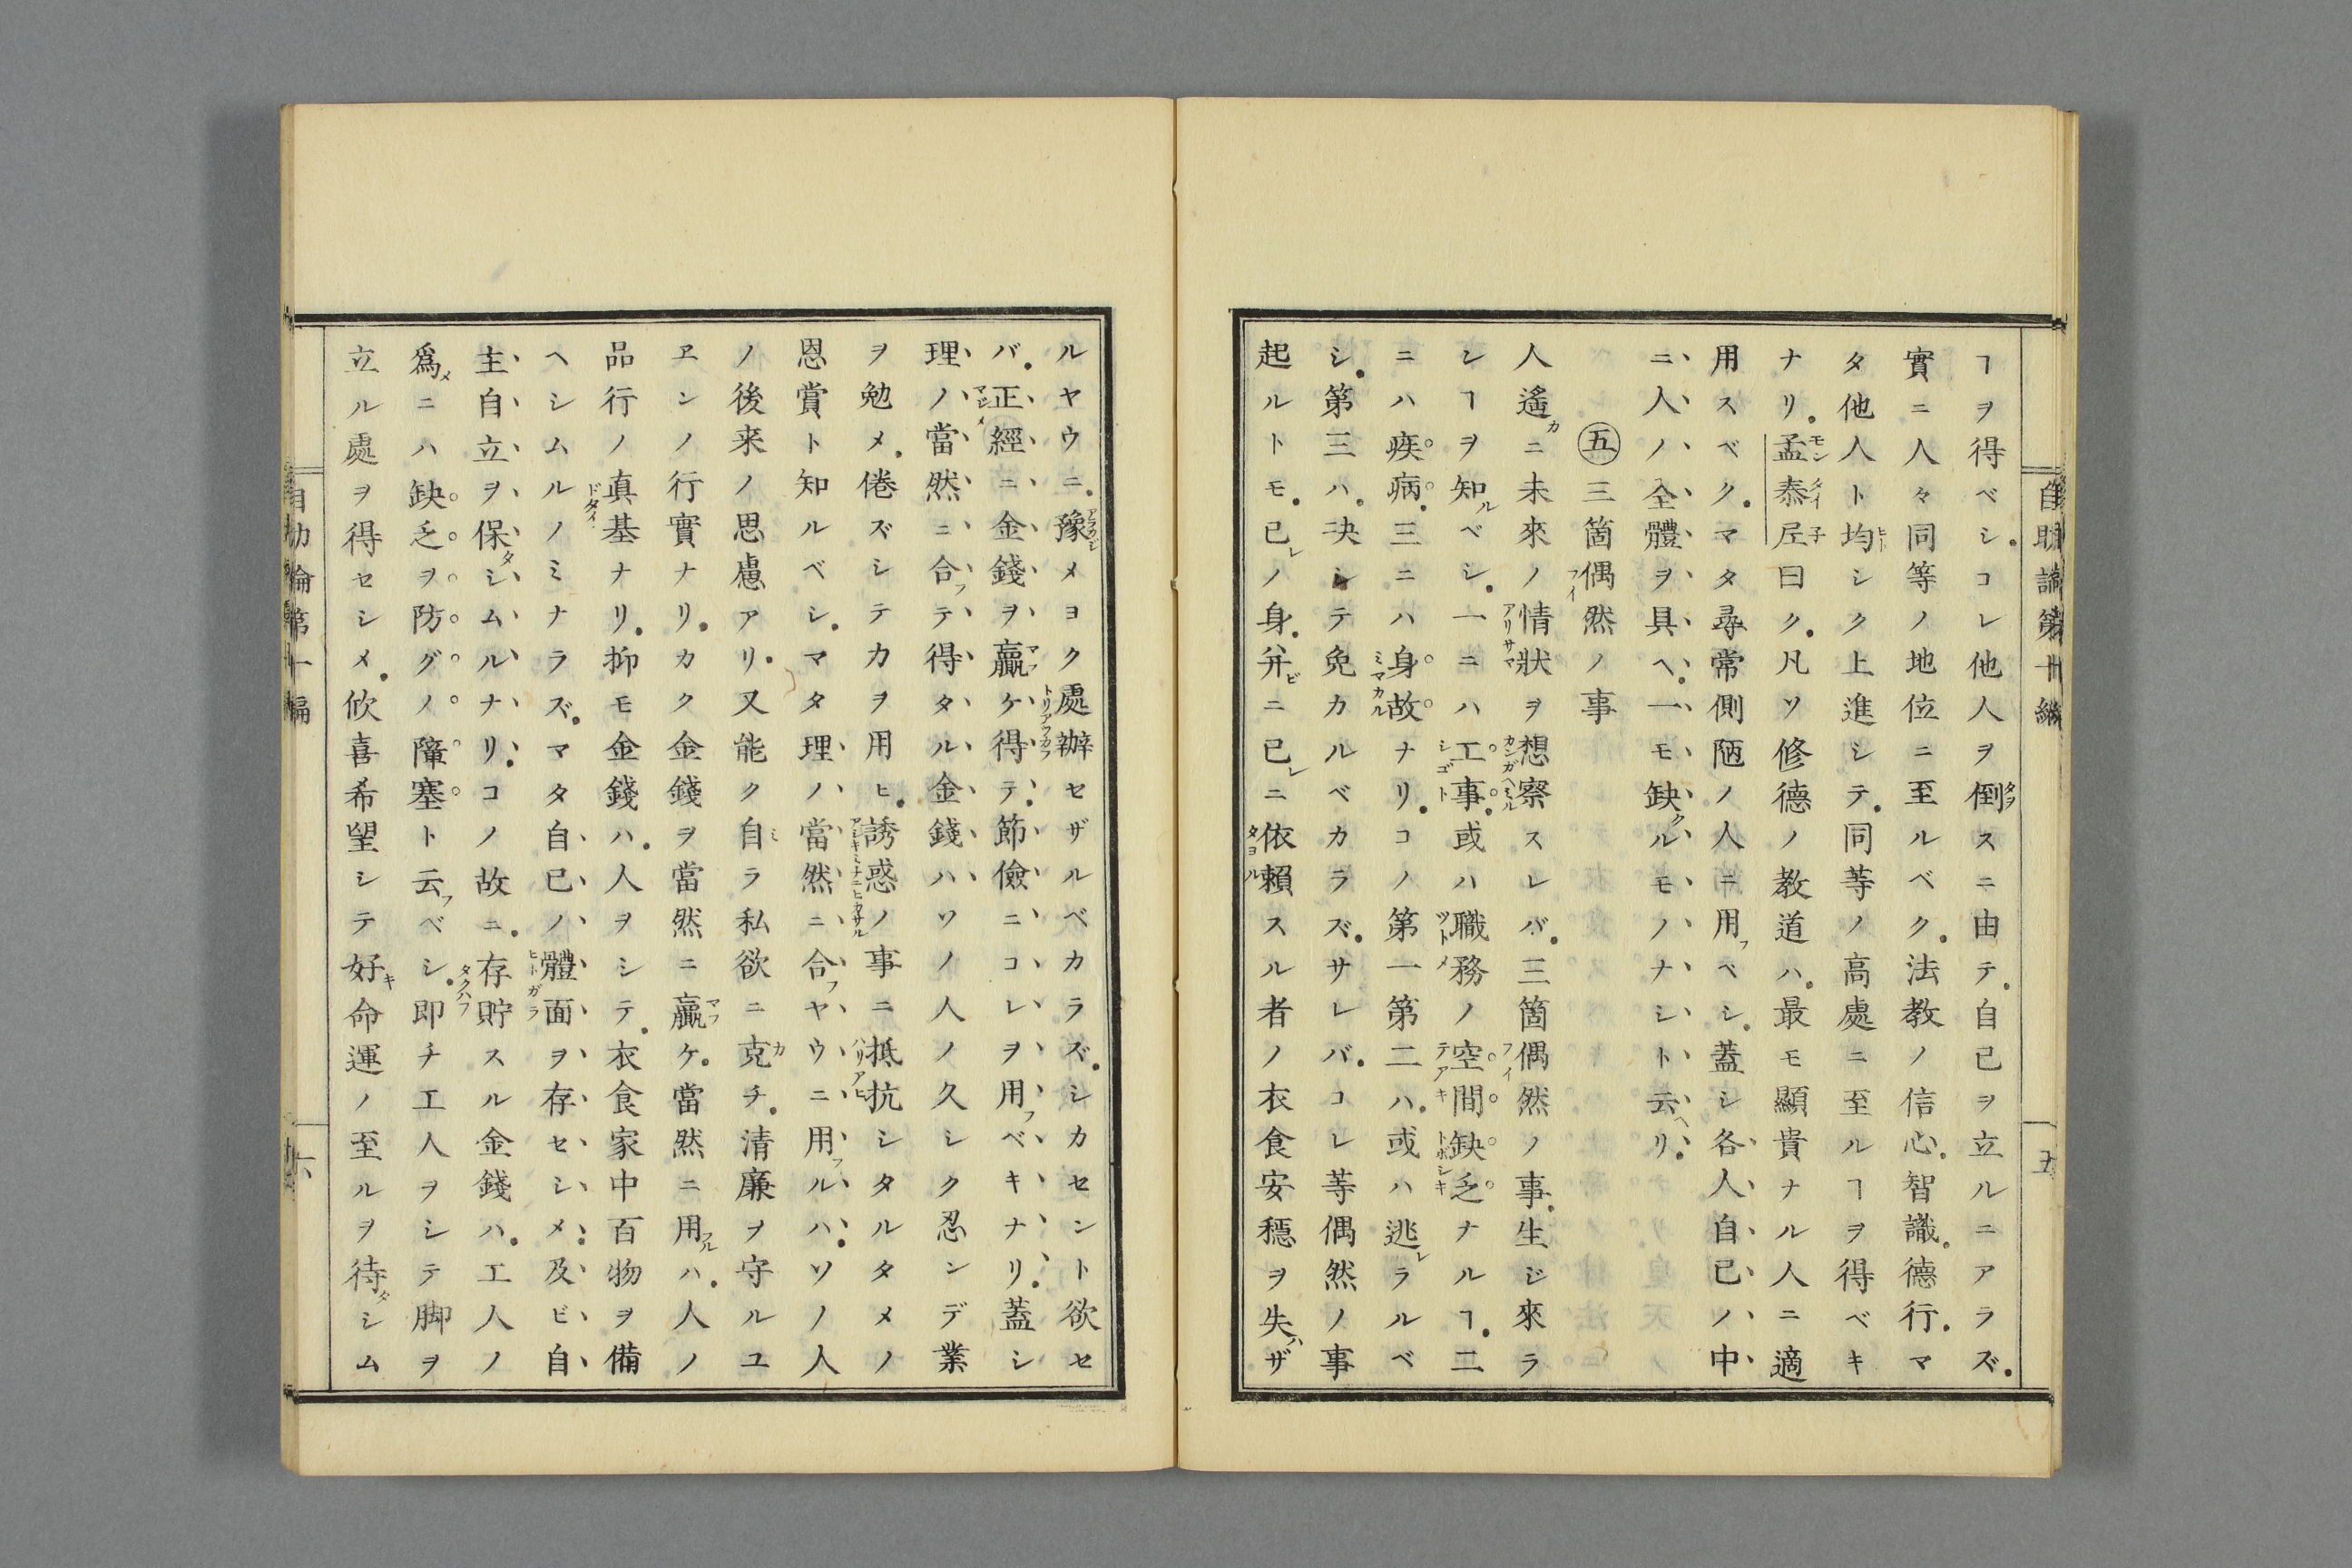 自助論第十編
五
ヿヲ得ベシ.コレ他人ヲ倒スニ由テ.自己ヲ立ルニアラズ.
實ニ人々同等ノ地位ニ至ルベク.法教ノ信心.智識.德行.マ
タ他人ト均シク上進シテ.同等ノ高處ニ至ルヿヲ得ベキ
ナリ.孟泰尼曰ク.凡ソ修德ノ教道ハ.最モ顯貴ナル人ニ適
用スベク.マタ尋常側陋ノ人ニ用フベシ.蓋シ各人自己ノ中
ニ人ノ全體ヲ具ヘ.一モ缺クルモノナシト云ヘリ.
㊄三箇偶然ノ事
人遙カニ未來ノ情狀ヲ想察スレバ.三箇偶然ノ事.生ジ來ラ
シヿヲ知ルベシ.一ニハ工事.或ハ職務ノ空間缺乏ナルヿ.二
ニハ疾病.三ニハ身故ナリ.コノ第一第二ハ.或ハ逃レラルベ
シ.第三ハ.決シテ免カルベカラズ.サレバ.コレ等偶然ノ事
起ルトモ.己レノ身.并ビニ己レニ依賴スル者ノ衣食安穩ヲ失ハザ
ルヤウニ.豫メヨク處辦セザルベカラズ.シカセント欲セ
バ.正經ニ金錢ヲ贏ケ得テ.節儉ニコレヲ用フベキナリ.蓋シ
理ノ當然ニ合フテ得タル金錢ハソノ人ノ久シク忍ンデ業
ヲ勉メ.倦ズシテ力ヲ用ヒ.誘惑ノ事ニ抵抗シタルタメノ
恩賞ト知ルベシ.マタ理ノ當然ニ合フヤウニ用フルハ.ソノ人
ノ後来ノ思慮アリ.又能ク自ラ私欲ニ克チ.清廉ヲ守ルユ
ヱンノ行實ナリ.カク金錢ヲ當然ニ贏ケ.當然ニ用フルハ.人ノ
品行ノ真基ナリ.抑モ金錢ハ.人ヲシテ.衣食家中百物ヲ備
ヘシムルノミナラズ.マタ自己ノ體面ヲ存セシメ.及ビ自
主自立ヲ保タシムルナリ.コノ故ニ.存貯スル金錢ハ.工人ノ
爲メニハ缺乏ヲ防グノ障塞ト云フベシ.即チ工人ヲシテ脚ヲ
立ル處ヲ得セシメ.欣喜希望シテ好キ命運ノ至ルヲ待タシム
自助論第十編
六